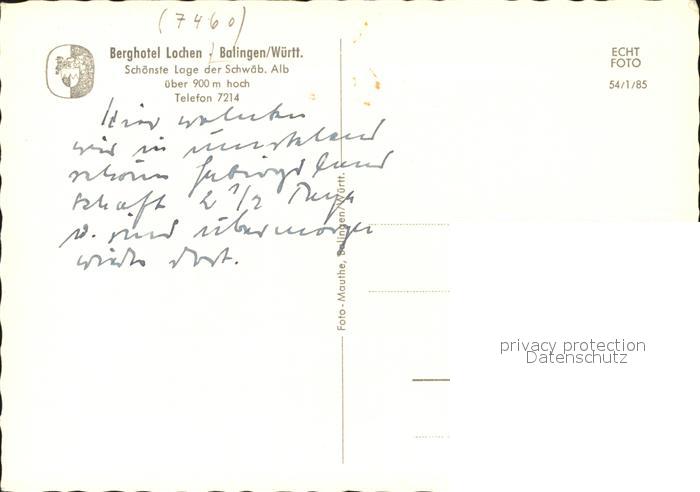 (7460)
Berghotel Lochen - Balingen/Württ.
Schönste Lage der Schwäb. Alb
über 900 m hoch
Telefon 7214
ECHT
FOTO
54/1/85
Hier wohnten
wir in
schön Gebirgsland
schaft 2 1/2 Tage
u. sind übermorgen
wieder dort.
Foto-Mauthe, Balingen/Württ.
privacy protection
Datenschutz